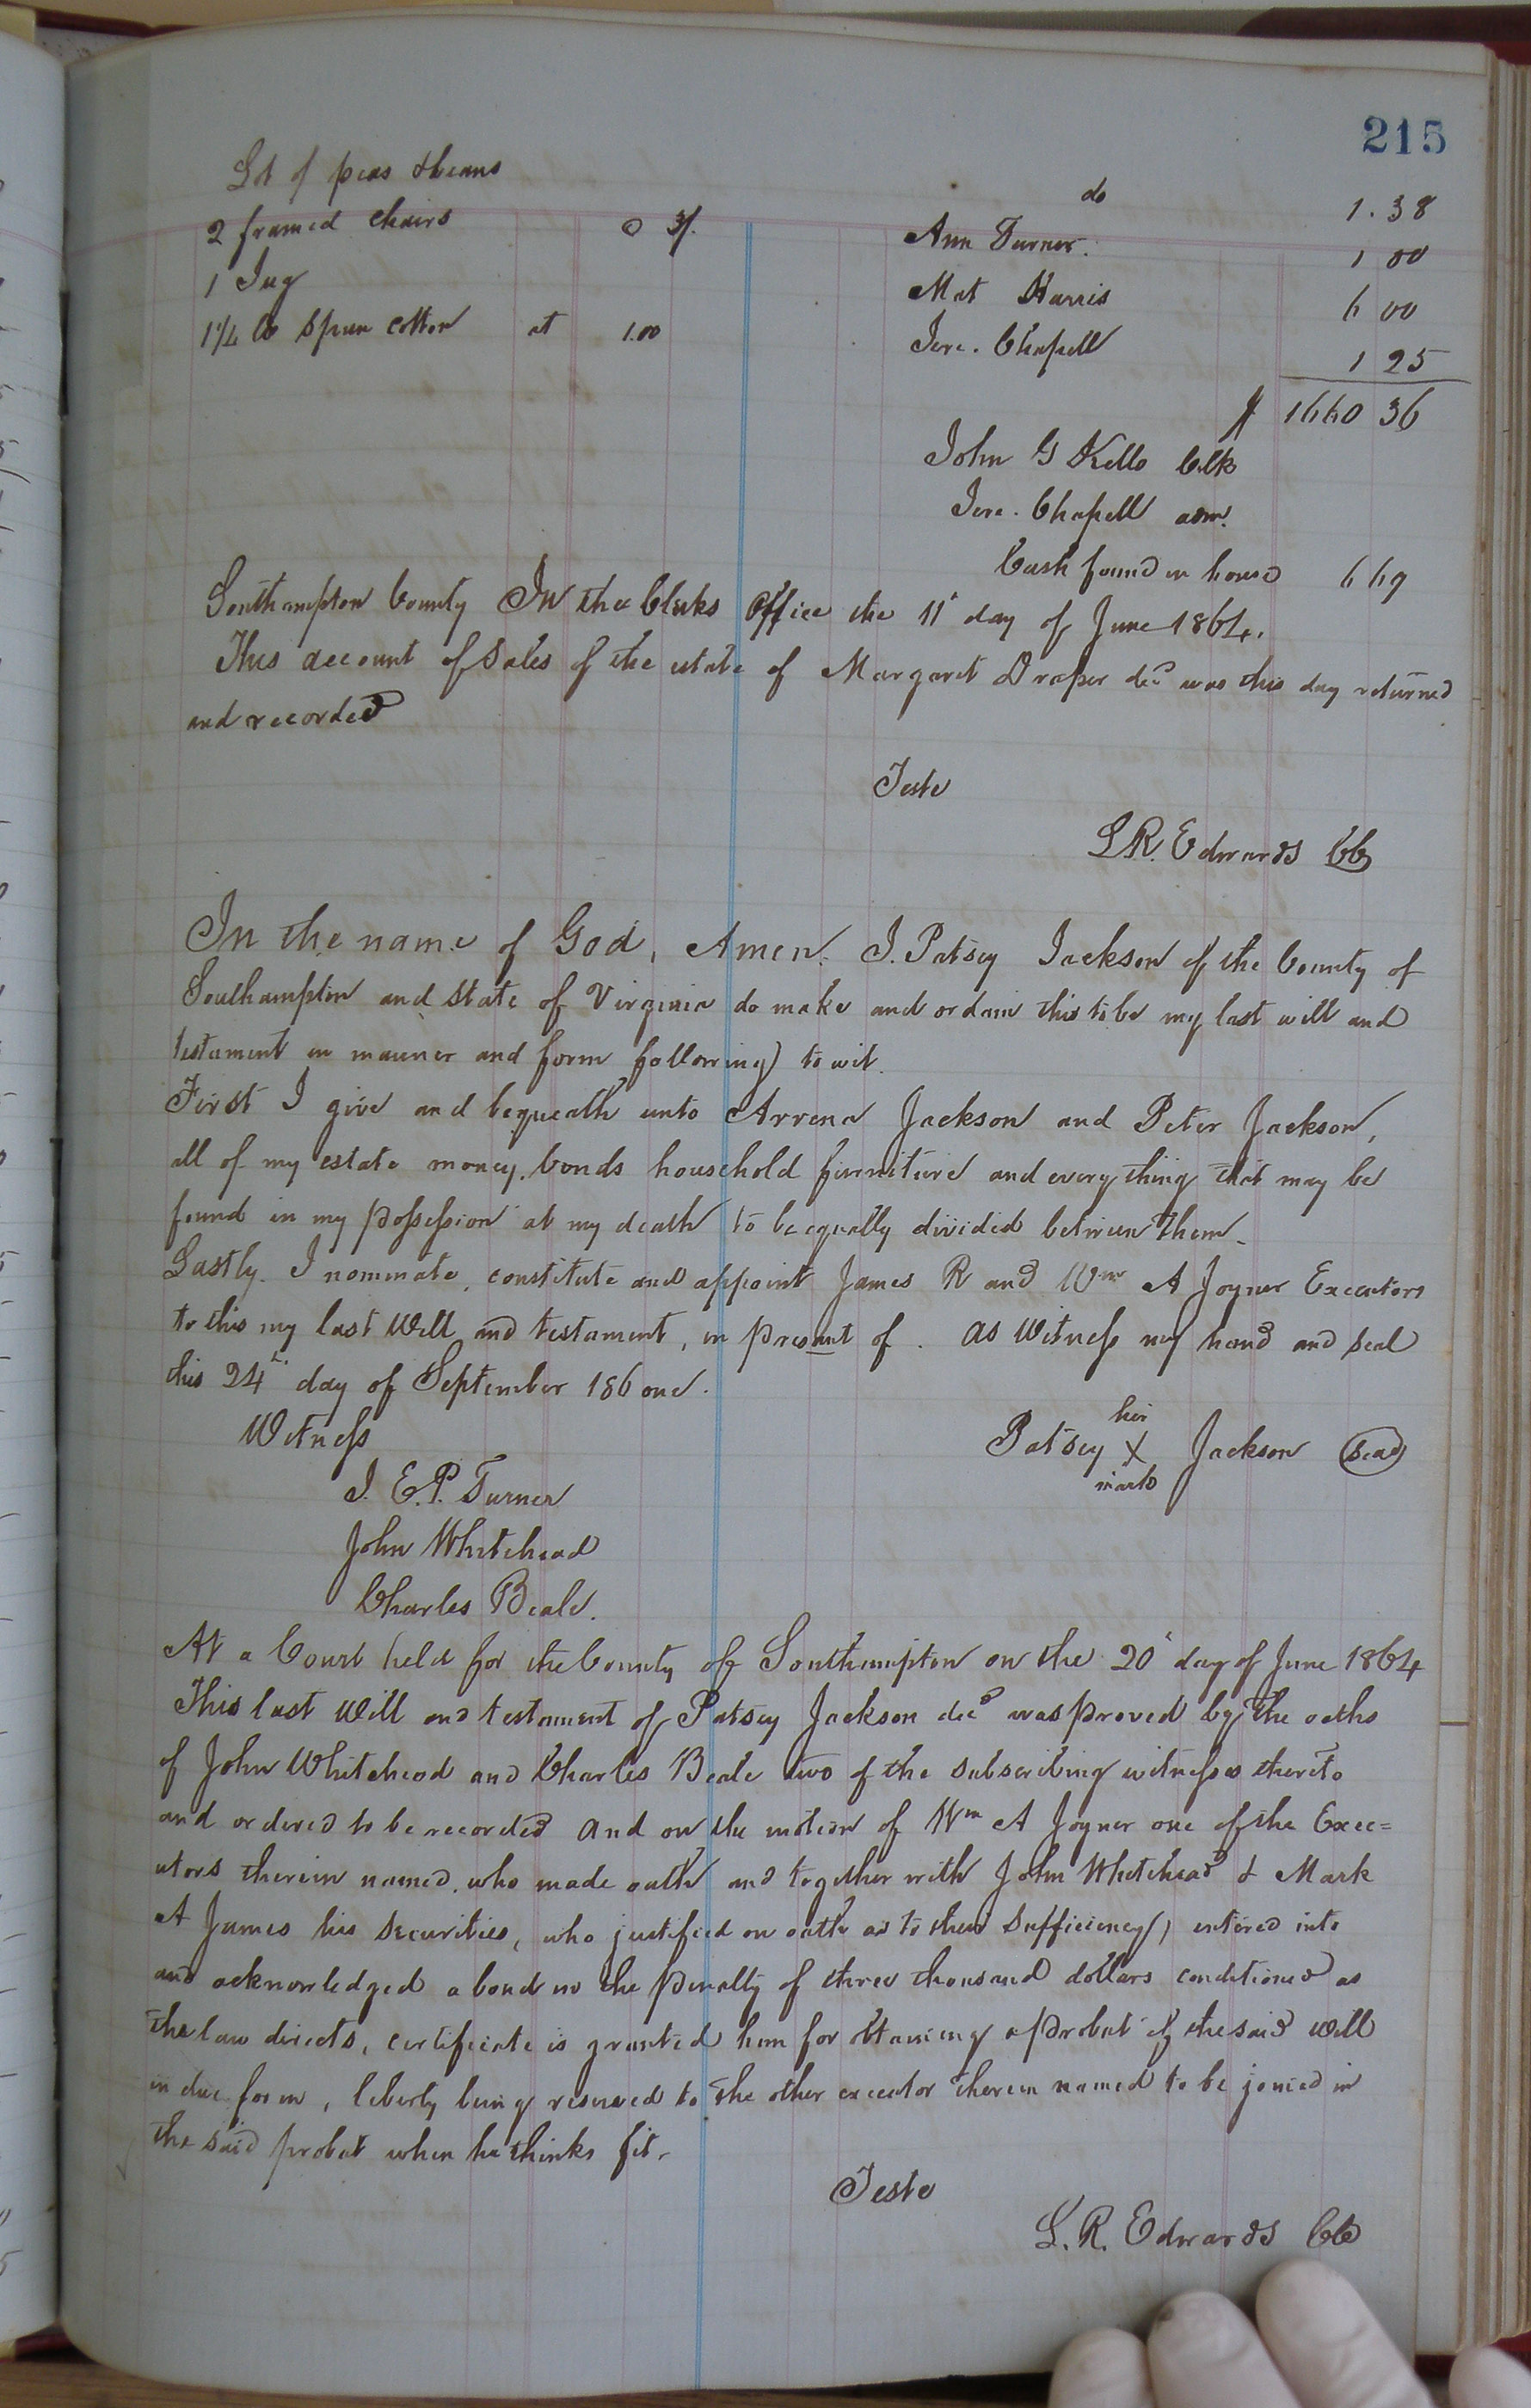 215
Lot of peas & beans do 1.38
2 framed chairs @ 3/. Ann Turner. 1 00
1 Jug Mat Harris 6 00
1 1/4 lb Spun cotton at 1.00 Jere. Chapell 1 25
$ 1660 36
John G Kello Clk
Jere. Chapell adm.
Cash found in house 6 69
Southampton County In the Clerks Office the 11' day of June 1864.
This account of Sales of the estate of Margaret Draper decd was this day returned
and recorded
Teste
L R. Edwards CC
In the name of God, Amen. I. Patsey Jackson of the County of
Southampton and State of Virginia do make and ordain this to be my last will and
testament in manner and form following) to wit.
First I give and bequeath unto Arrena Jackson and Peter Jackson,
all of my estate money. bonds household furniture and every thing that may be
found in my possession at my death to be equally divided between them.
Lastly. I nominate, constitute and appoint James R and Wm A Joyner Executors
to this my last Will and testament, in presant of . As Witness my hand and seal
this 24th day of September 186 one.
Witness
her
Patsey X Jackson Seal
mark
J. E. P. Turner
John Whitehead
Charles Beale.
At a Court held for the County of Southampton on the 20' day of June 1864
This last Will and testament of Patsey Jackson decd was proved by the oaths
of John Whitehead and Charles Beale two of the subscribing witnesses thereto
and ordered to be recorded and on the motion of Wm A Joyner one of the Exec=
utors therein named. who made oath and together with John Whitehead & Mark
A James his securities, who justified on oath as to their sufficiency) entered into
and acknowledged a bond in the penalty of three thousand dollars conditioned as
the law directs, certificate is granted him for obtaining a probat of the said will
in due form, liberty being reserved to the other executor therein named to be joined in
the said probat when he thinks fit.
Teste
L. R. Edwards CC